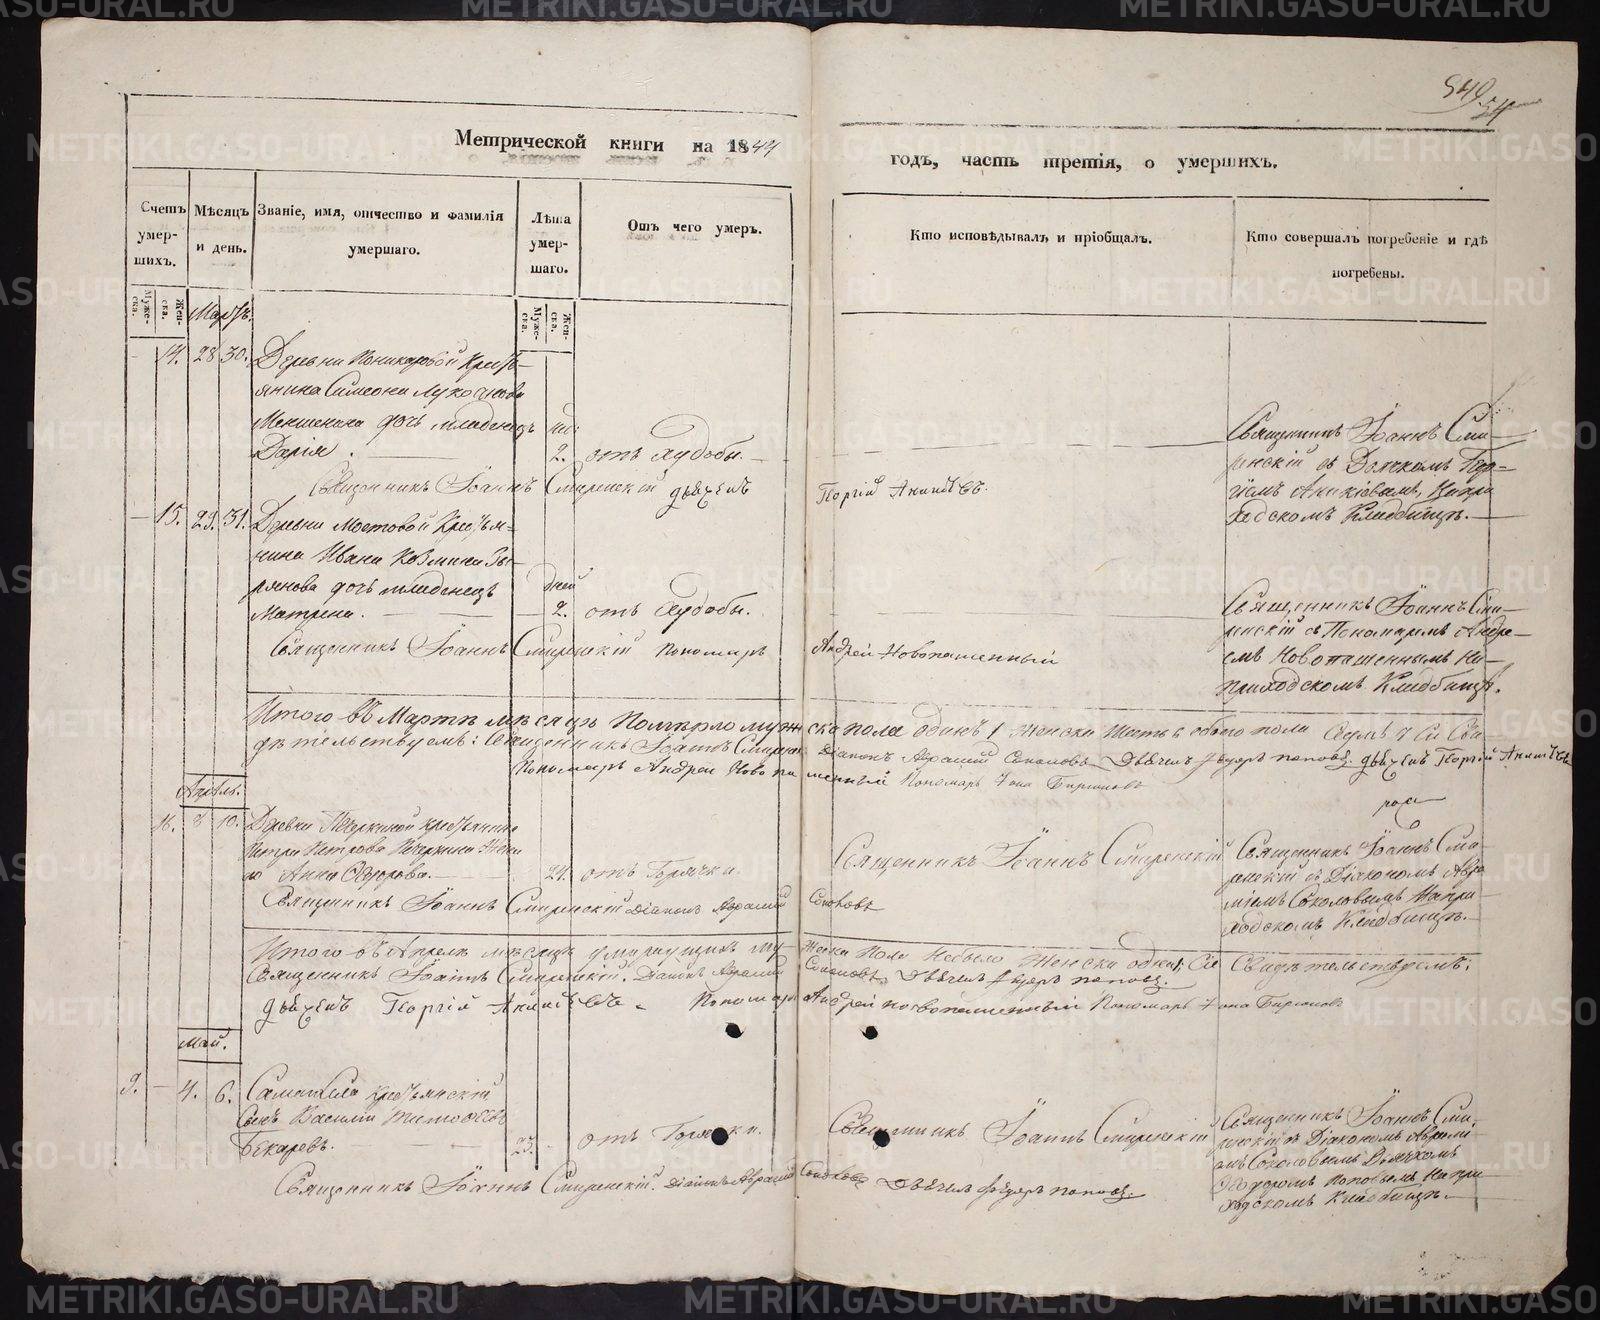 540
54
Метрической книги на 1844
годъ, часть третія, о умершихъ.
Счетъ умер-шихъ.
Мѣсяцъ и день.
Званіе, имя, отчество и фамилія умершаго.
Лѣта умер-шаго.
Отъ чего умеръ.
Кто исповѣдывалъ и пріобщалъ.
Кто совершалъ погребеніе и гдѣ погребены.
Муже-ска.
Жен-ска.
Муже-ска.
Жен-ска.
Мартъ.
14. 28 30. Деревни Крестъ-
янина Симеона
Меншенина дочь младенецъ
Дарія. 2. отъ худобы.
Священникъ Іоаннъ Сми-
ренскій съ Дьячкомъ Геор-
гіемъ Аникіевымъ, на при
ходскомъ Кладбищѣ.
Священникъ Іоаннъ Смиренскій дьячекъ Георгій Аникіевъ.
15. 29. 31. Деревни Мостовой Крестья-
нина Ивана Козмина Зы-
рянова дочь младенецъ дней
Матрена. 2. отъ худобы.
Священникъ Іоаннъ Сми-
ренскій съ Пономаремъ Андре-
емъ Новопашеннымъ на
приходскомъ Кладбищѣ.
Священникъ Іоаннъ Смиренскій пономарь Андрей Новопашенный
Итого въ Мартѣ мѣсяцѣ померло мужска пола одинъ 1 женска шесть 6 обоего пола семь 7 Сви
дѣтельствуемъ: Священникъ Іоаннъ Смиренскій Діаконъ Авраамій Соколовъ Дьячекъ Ѳедоръ Поповъ. дьячекъ Георгій Аникіевъ
Пономарь Андрей Новопашенный Пономарь Іона Бирюковъ
Апрѣль.
16. 8 10. Деревни крестьянина
Петра Петрова жена
Анна Ѳедорова. 24. отъ Горячки.
Священникъ Іоаннъ Смиренскій
Священникъ Іоаннъ Сми-
ренскій съ Діакономъ Авра
міемъ Соколовымъ на при-
ходскомъ Кладбищѣ.
Священникъ Іоаннъ Смиренскій Діаконъ Авраамій Соколовъ
Итого въ Апрелѣ мѣсяцѣ умирущихъ мужеска пола небыло женска одна 1, Свидѣтельствуемъ:
Священникъ Іоаннъ Смиренскій. Діаконъ Авраамій Соколовъ Дьячекъ Ѳедоръ поповъ.
дьячекъ Георгій Аникіевъ. Пономарь Андрей новопашенный Пономарь Іона Бирюковъ
Май.
9. 4. 6. Села крестьянскій
сынъ Василій Тимоѳеевъ
Бекаревъ. 23. отъ Горячки.
Священникъ Іоаннъ Смиренскій
Священникъ Іоаннъ Сми-
ренскій съ Діакономъ Аврами
емъ Соколовымъ Дьячкомъ
Ѳедоромъ Поповымъ на при
ходскомъ Кладбищѣ.
Священникъ Іоаннъ Смиренскій. Діаконъ Авраамій Соколовъ Дьячекъ Ѳедоръ поповъ.
METRIKI.GASO-URAL.RU